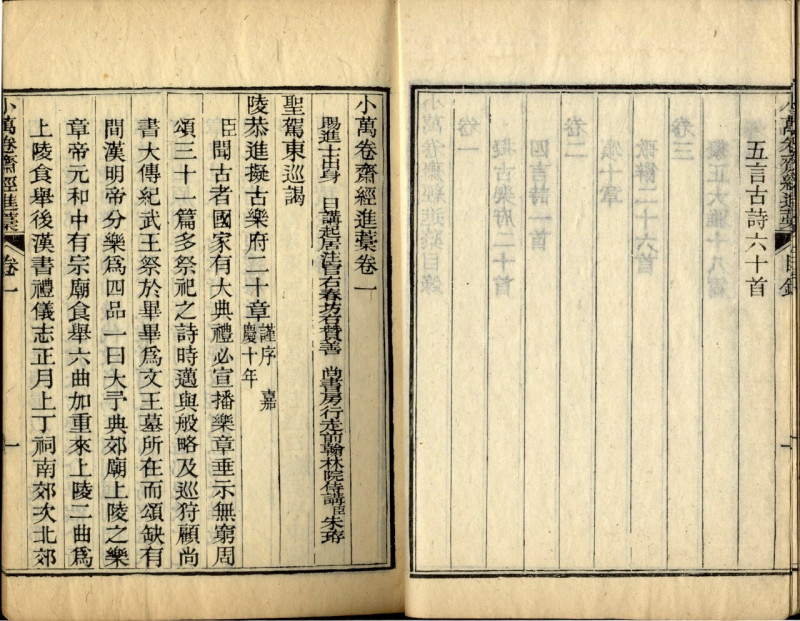 五言古詩六十首
小萬卷齋經進藁 目錄
小萬卷齋經進藁卷一
賜進士出身 日講起居注官右春坊右贊善 尚書房行走前翰林院侍講臣朱珔
聖駕東巡謁
陵恭進擬古樂府二十章謹序 嘉慶十年
臣聞古者國家有大典禮必宣播樂章垂示無窮周
頌三十一篇多祭祀之詩時邁與般略及巡狩顧尚
書大傳紀武王祭於畢畢爲文王墓所在而頌缺有
間漢明帝分樂爲四品一曰大予典郊廟上陵之樂
章帝元和中有宗廟食舉六曲加重來上陵二曲爲
上陵食舉後漢書禮儀志正月上丁祠南郊次北郊
小萬卷齋經進藁 卷一 一